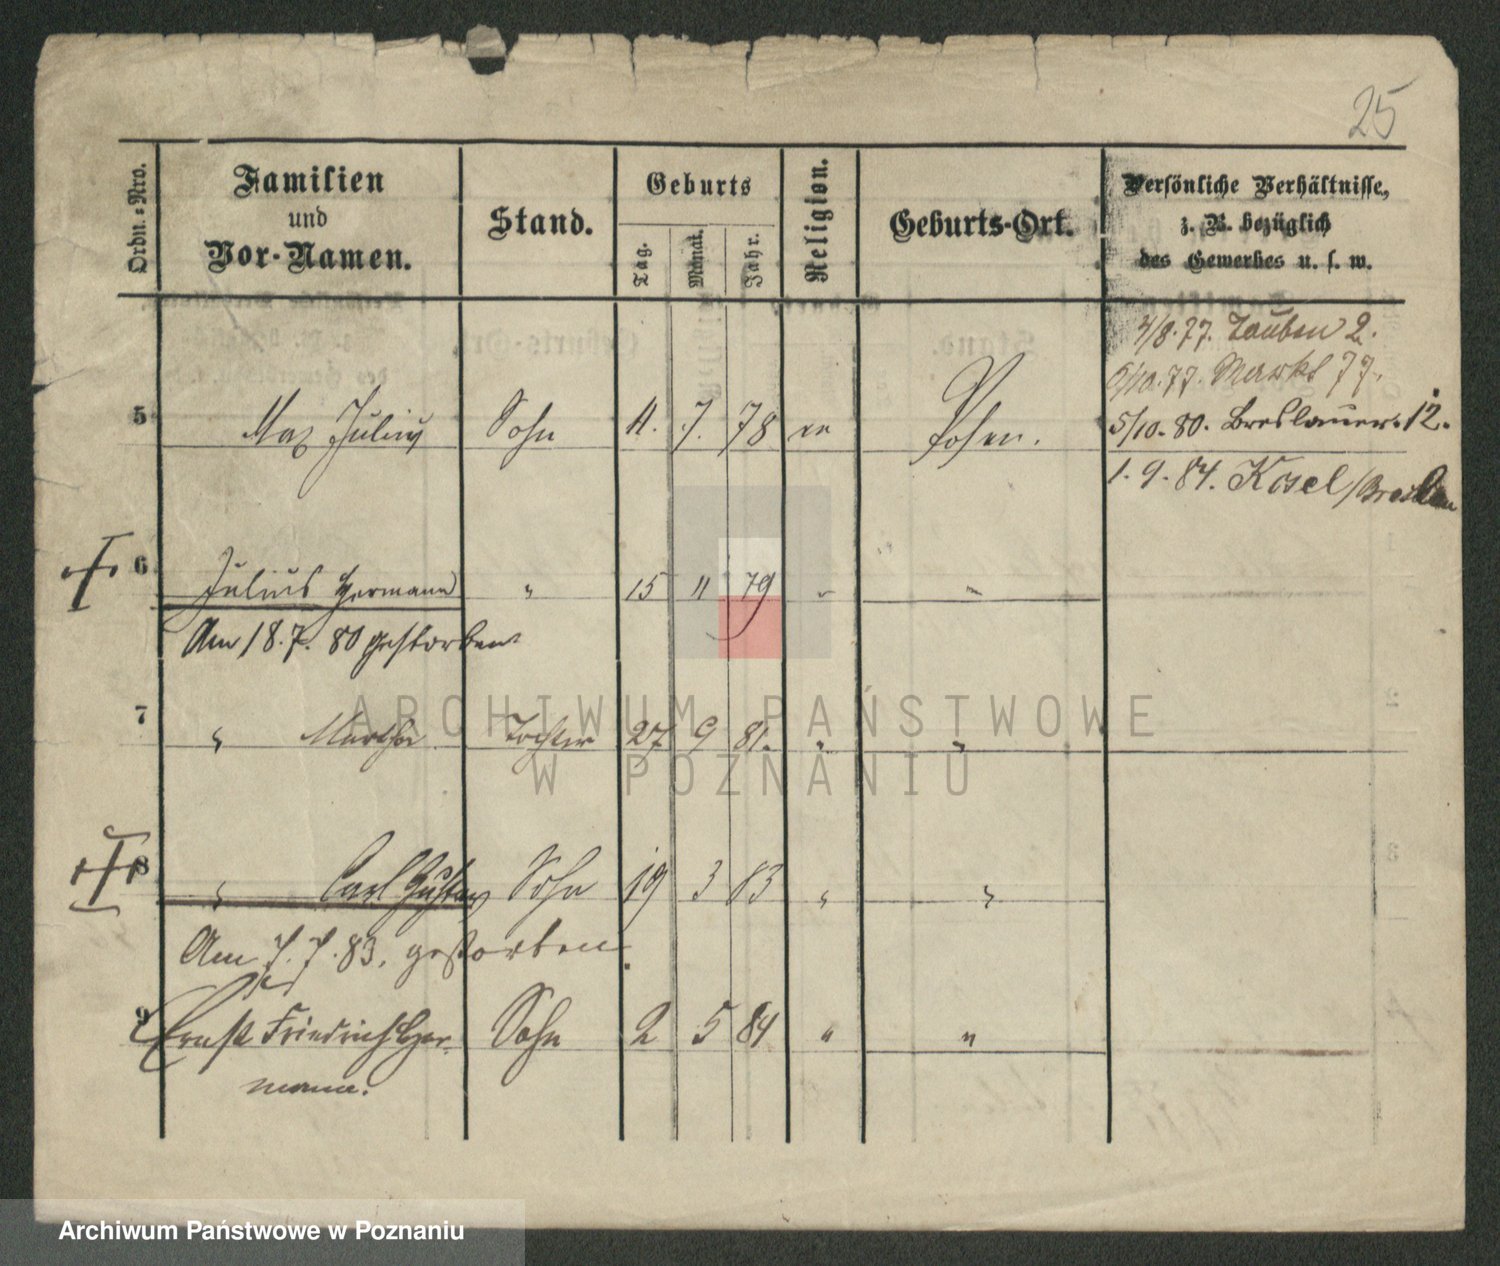 25
Ordn.=Nro.
Familien
und
Vor-Namen.
Stand.
Geburts
Tag.
Monat.
Jahr.
Religion.
Geburts-Ort.
Persönliche Verhältnisse,
z. B. bezüglich
des Gewerbes u. s. w.
4/8. 77. Tauben 2.
6/10. 77. Markt 77.
5 Max Julius Sohn 11. 7. 78 ev Posen. 5/10. 80. Breslauer. 12.
1. 9. 84. Kosel / Breslau
6 Julius Hermann " 15 11 79 " "
Am 18. 7. 80 gestorben
7 " Martha Tochter 27 9 81. " "
8 " Carl Gustav Sohn 19 3 83 " "
Am 7. 7. 83. gestorben.
9 Ernst Friedrich Her- Sohn 2 5 84 " "
mann.
ARCHIWUM PAŃSTWOWE
W POZNANIU
Archiwum Państwowe w Poznaniu